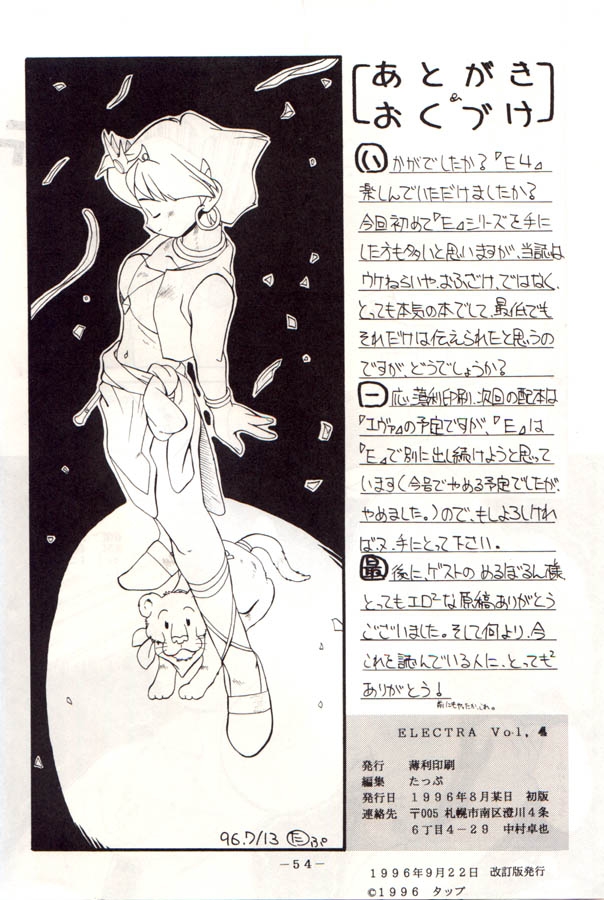 あとがき
&
おくづけ
いかがでしたか？『E4』
楽しんでいただけましたか？
今回初めて『E』シリーズを手に
した方も多いと思いますが、当誌は
ウケねらいや、おふざけ、ではなく、
とっても本気の本でして、最低でも
それだけは伝えられたと思うの
ですが、どうでしょうか？
一応、薄利印刷、次回の配本は
『エヴァ』の予定ですが、『E』は
『E』で別に出し続けようと思って
います（今号でやめる予定でしたが、
やめました。）ので、もしよろしけれ
ば、又、手にとって下さい。
最後に、ゲストのめるぼるん様、
とってもエロ²な原稿、ありがとう
ございました。そして何より、今
これを読んでいる人に、とっても²
ありがとう！
前にもやったか、これ。
ELECTRA Vol, 4
発行 薄利印刷
編集 たっぷ
発行日 1996年8月某日 初版
連絡先 〒005 札幌市南区澄川4条
6丁目4－29 中村卓也
1996年9月22日 改訂版発行
©1996 タップ
96.7/13 たっぷ
－54－